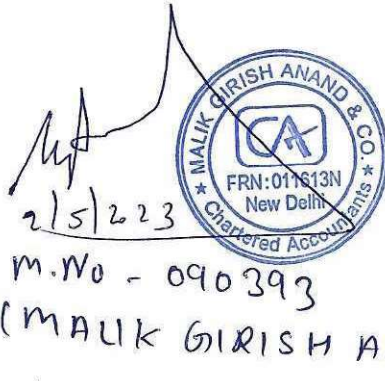 MALIK GIRISH ANAND & CO.
CA
FRN: 011613N
New Delhi
Chartered Accountants
2/5/2023
M.NO - 090393
(MALIK GIRISH A